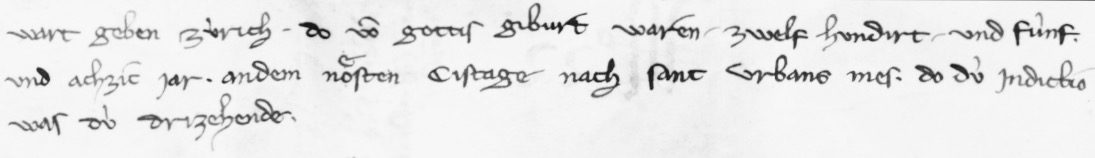 wart geben zv̍rich · do vō gottis giburt waren · zwelf hundirt · und fv̍nf.
und achzic iar · an dem nο̂sten Cistage nach sant Urbans mes · do dv̍ Indictio
was dv̍ drizehende.